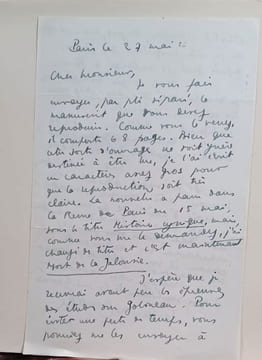 Paris le 27 mai
Cher Monsieur,
Je vous fais
envoyer, par pli séparé, le
manuscrit que vous devez
reproduire. Comme vous le verrez,
il comporte 68 pages. Bien que
cette sorte d'ouvrage ne soit guère
destinée à être lue, je l'ai écrit
en caractères assez gros pour
que la reproduction soit très
claire. La nouvelle a paru dans
la Revue de Paris du 15 mai,
sous le titre Histoire cynique, mais,
comme vous me le demandez, j'ai
changé de titre et c'est maintenant
Mort de la Jalousie.
J'espère que je
recevrai avant peu les épreuves
des études sur Gobineau. Pour
éviter une perte de temps, vous
pouvez me les envoyer à